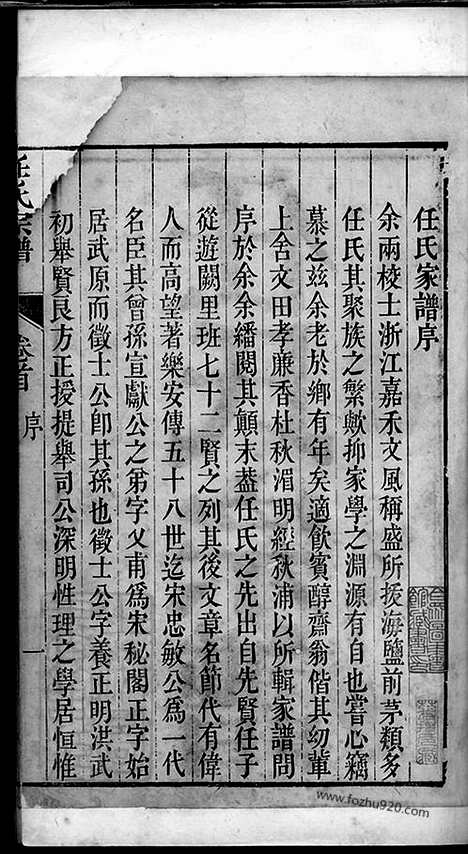 任氏家譜序
余兩校士浙江嘉禾文風稱盛所拔海鹽前茅類多
任氏其聚族之繁歟抑家學之淵源有自也嘗心竊
慕之兹余老於鄉有年矣適飲賓醇齋翁偕其幼輩
上舍文田孝廉香杜秋湄明經秋浦以所輯家譜問
序於余余繙閱其顛末葢任氏之先出自先賢任子
從遊闕里班七十二賢之列其後文章名節代有偉
人而高望著樂安傳五十八世迄宋忠敏公為一代
名臣其曾孫宣獻公之弟字乂甫爲宋秘閣正字始
居武原而徵士公卽其孫也徵士公字養正明洪武
初舉賢良方正授提舉司公深明性理之學居恒惟
任氏宗譜
卷首
序
一
www.fozhu920.com